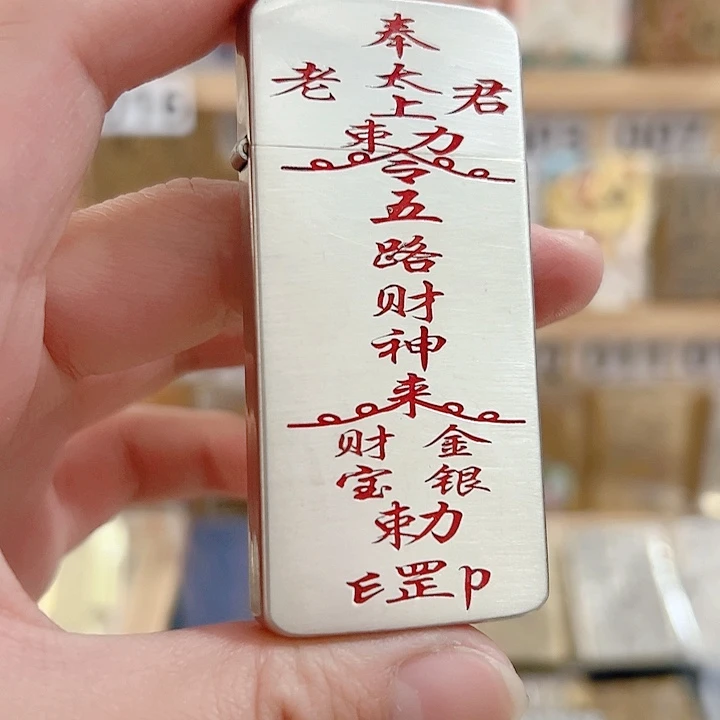 奉
太
老 上 君
敕令
五
路
财
神
来
财 金
宝 银
敕
罡印